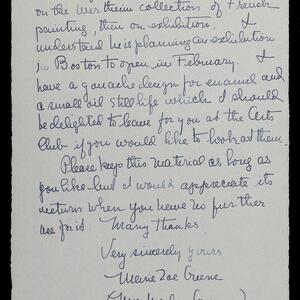 on the Wertheim collection of French
painting, then on exhibition. I
understand he is planning an exhibition
in Boston to open in February. I
have a gouache design for enamel and
a small oil still life which I should
be delighted to leave for you at the Arts
Club if you would like to look at them.
Please keep this material as long as
you like but I would appreciate its
return when you have no further
use for it. Many thanks.
Very sincerely yours
Marie Zoe Greene